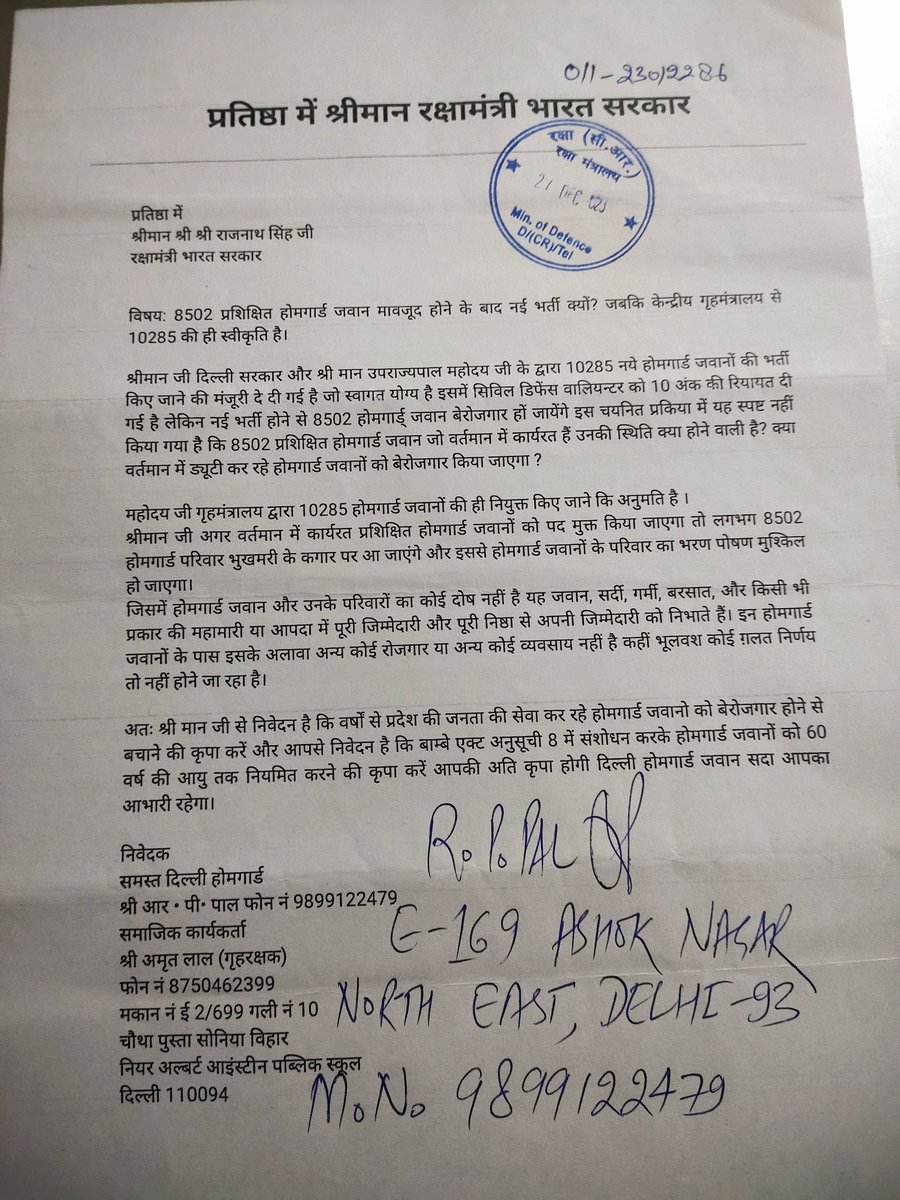 011-23012286
प्रतिष्ठा में श्रीमान रक्षामंत्री भारत सरकार
रक्षा (सी.आर.)
रक्षा मंत्रालय
DEC
Min. of Defence
D/(CR)/Tel
प्रतिष्ठा में
श्रीमान श्री श्री राजनाथ सिंह जी
रक्षामंत्री भारत सरकार
विषय: 8502 प्रशिक्षित होमगार्ड जवान मावजूद होने के बाद नई भर्ती क्यों? जबकि केन्द्रीय गृहमंत्रालय से
10285 की ही स्वीकृति है।
श्रीमान जी दिल्ली सरकार और श्री मान उपराज्यपाल महोदय जी के द्वारा 10285 नये होमगार्ड जवानों की भर्ती
किए जाने की मंजूरी दे दी गई है जो स्वागत योग्य है इसमें सिविल डिफेंस वालियन्टर को 10 अंक की रियायत दी
गई है लेकिन नई भर्ती होने से 8502 होमगार्ड् जवान बेरोजगार हों जायेंगे इस चयनित प्रकिया में यह स्पष्ट नहीं
किया गया है कि 8502 प्रशिक्षित होमगार्ड जवान जो वर्तमान में कार्यरत हैं उनकी स्थिति क्या होने वाली है? क्या
वर्तमान में ड्यूटी कर रहे होमगार्ड जवानों को बेरोजगार किया जाएगा ?
महोदय जी गृहमंत्रालय द्वारा 10285 होमगार्ड जवानों की ही नियुक्त किए जाने कि अनुमति है ।
श्रीमान जी अगर वर्तमान में कार्यरत प्रशिक्षित होमगार्ड जवानों को पद मुक्त किया जाएगा तो लगभग 8502
होमगार्ड परिवार भुखमरी के कगार पर आ जाएंगे और इससे होमगार्ड जवानों के परिवार का भरण पोषण मुश्किल
हो जाएगा।
जिसमें होमगार्ड जवान और उनके परिवारों का कोई दोष नहीं है यह जवान, सर्दी, गर्मी, बरसात, और किसी भी
प्रकार की महामारी या आपदा में पूरी जिम्मेदारी और पूरी निष्ठा से अपनी जिम्मेदारी को निभाते हैं। इन होमगार्ड
जवानों के पास इसके अलावा अन्य कोई रोजगार या अन्य कोई व्यवसाय नहीं है कहीं भूलवश कोई ग़लत निर्णय
तो नहीं होने जा रहा है।
अतः श्री मान जी से निवेदन है कि वर्षों से प्रदेश की जनता की सेवा कर रहे होमगार्ड जवानो को बेरोजगार होने से
बचाने की कृपा करें और आपसे निवेदन है कि बाम्बे एक्ट अनुसूची 8 में संशोधन करके होमगार्ड जवानों को 60
वर्ष की आयु तक नियमित करने की कृपा करें आपकी अति कृपा होगी दिल्ली होमगार्ड जवान सदा आपका
आभारी रहेगा।
R. P. PAL
निवेदक
समस्त दिल्ली होमगार्ड
श्री आर • पी• पाल फोन नं 9899122479
समाजिक कार्यकर्ता
E-169 ASHOK NAGAR
श्री अमृत लाल (गृहरक्षक)
फोन नं 8750462399
मकान नं ई 2/699 गली नं 10
NORTH EAST, DELHI-93
चौथा पुस्ता सोनिया विहार
नियर अल्बर्ट आइंस्टीन पब्लिक स्कूल
दिल्ली 110094
M. No 9899122479